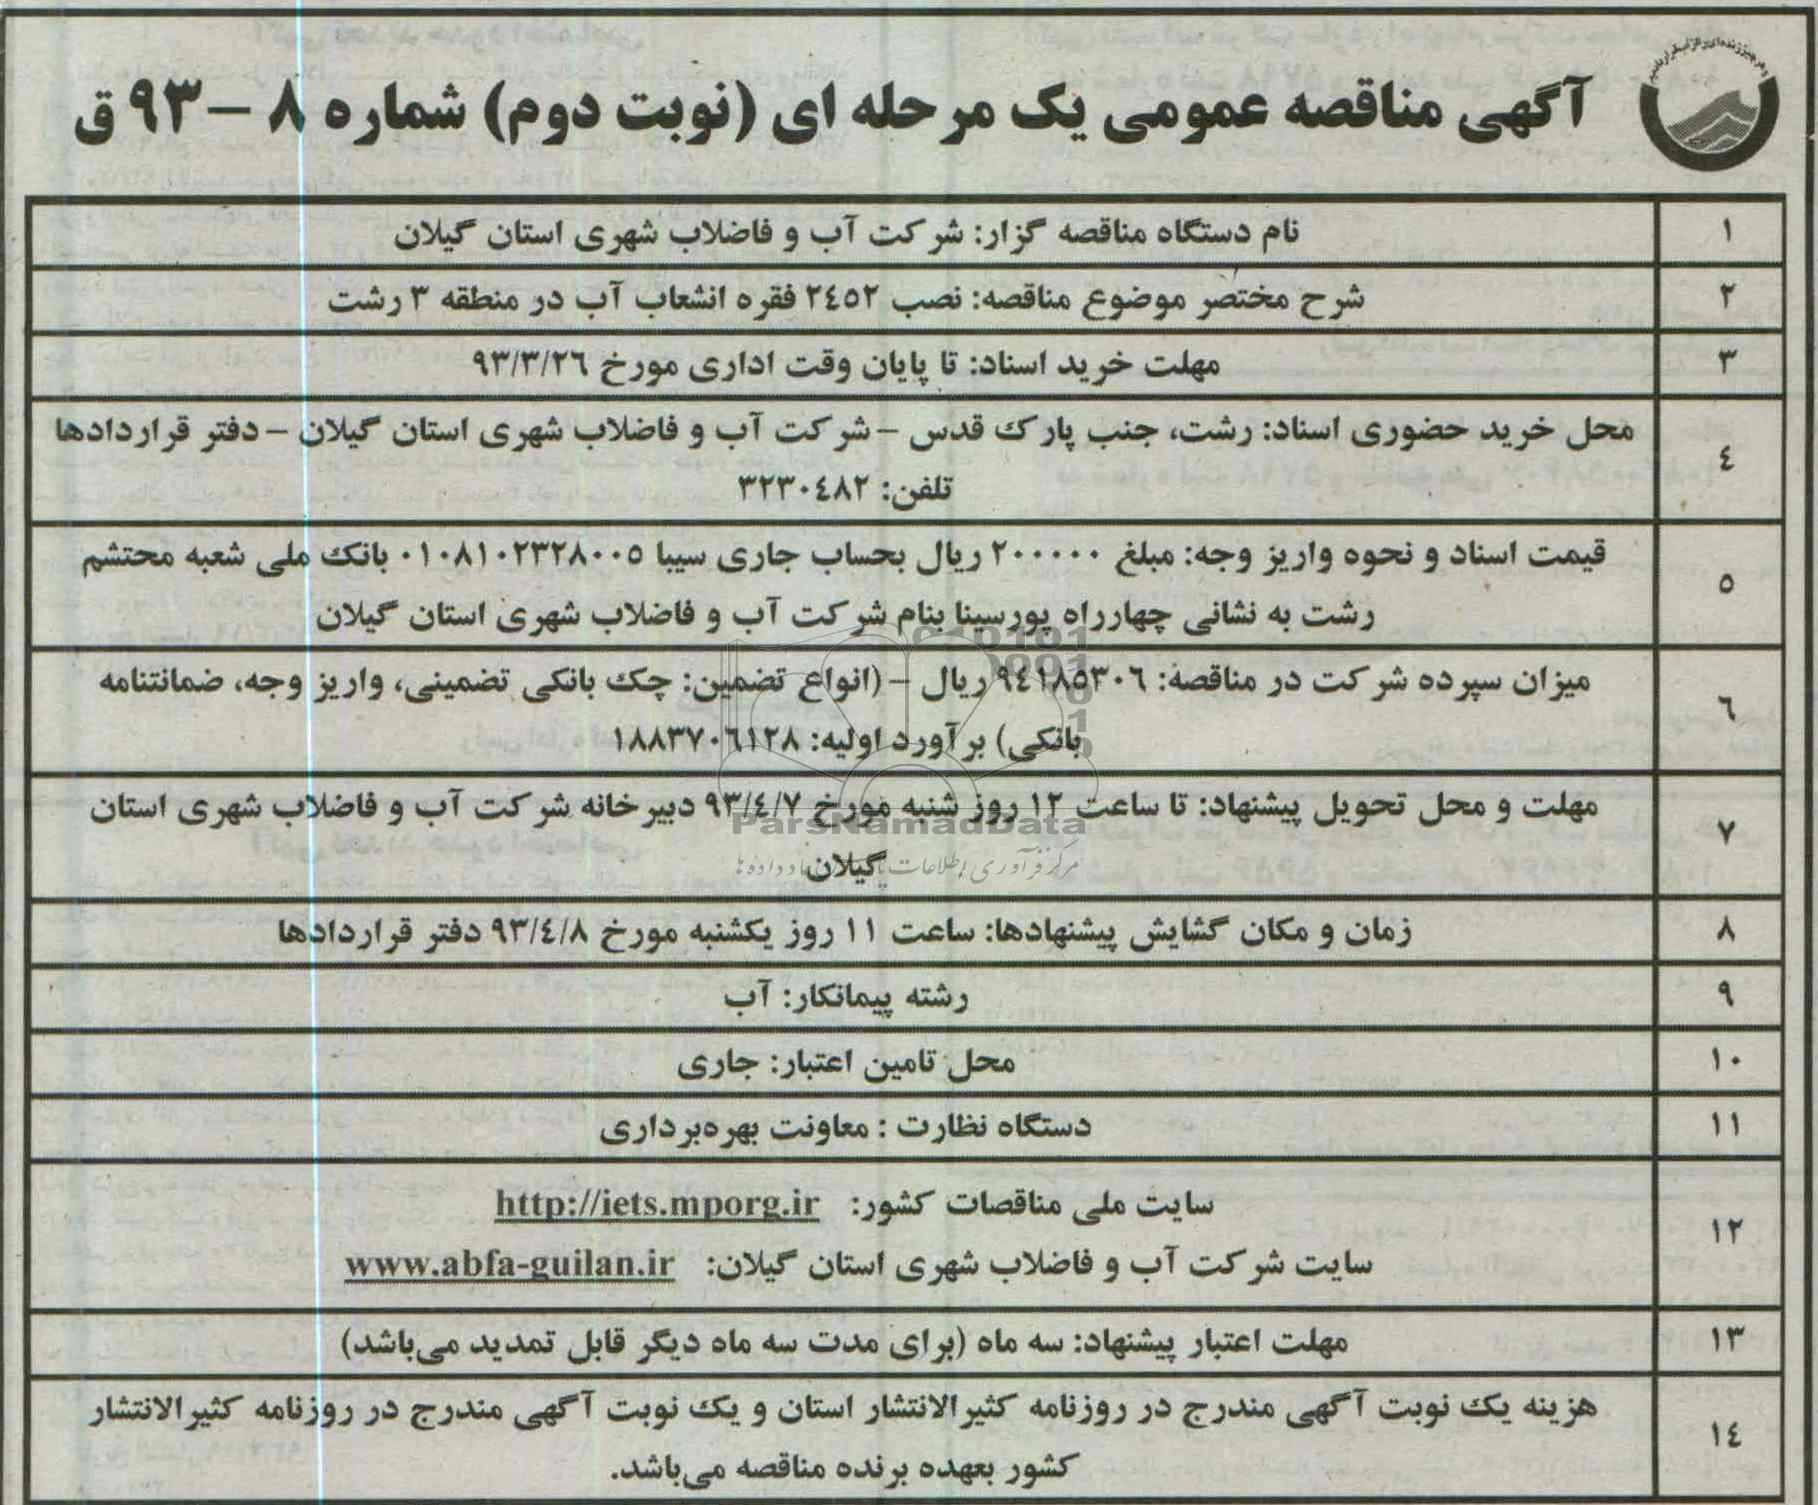 آگهی مناقصه عمومی یک مرحله ای (نوبت دوم) شماره ۸ – ۹۳ ق
۱
نام دستگاه مناقصه گزار: شرکت آب و فاضلاب شهری استان گیلان
۲
شرح مختصر موضوع مناقصه: نصب ۲٤٥۲ فقره انشعاب آب در منطقه ۳ رشت
۳
مهلت خرید اسناد: تا پایان وقت اداری مورخ ۹۳/۳/۲٦
٤
محل خرید حضوری اسناد: رشت، جنب پارک قدس – شرکت آب و فاضلاب شهری استان گیلان – دفتر قراردادها
تلفن: ۳۲۳۰٤۸۲
٥
قیمت اسناد و نحوه واریز وجه: مبلغ ۲۰۰۰۰۰ ریال بحساب جاری سیبا ۰۱۰۸۱۰۲۳۲۸۰۰٥ بانک ملی شعبه محتشم
رشت به نشانی چهارراه پورسینا بنام شرکت آب و فاضلاب شهری استان گیلان
٦
میزان سپرده شرکت در مناقصه: ۹٤۱۸٥۳۰٦ ریال – (انواع تضمین: چک بانکی تضمینی، واریز وجه، ضمانتنامه
بانکی) برآورد اولیه: ۱۸۸۳۷۰٦۱۲۸
۷
مهلت و محل تحویل پیشنهاد: تا ساعت ۱۲ روز شنبه مورخ ۹۳/٤/۷ دبیرخانه شرکت آب و فاضلاب شهری استان
گیلان
ParsNamadData
۸
زمان و مکان گشایش پیشنهادها: ساعت ۱۱ روز یکشنبه مورخ ۹۳/٤/۸ دفتر قراردادها
۹
رشته پیمانکار: آب
۱۰
محل تامین اعتبار: جاری
۱۱
دستگاه نظارت : معاونت بهره‌برداری
۱۲
سایت ملی مناقصات کشور: http://iets.mporg.ir
سایت شرکت آب و فاضلاب شهری استان گیلان: www.abfa-guilan.ir
۱۳
مهلت اعتبار پیشنهاد: سه ماه (برای مدت سه ماه دیگر قابل تمدید می‌باشد)
۱٤
هزینه یک نوبت آگهی مندرج در روزنامه کثیرالانتشار استان و یک نوبت آگهی مندرج در روزنامه کثیرالانتشار
کشور بعهده برنده مناقصه می‌باشد.